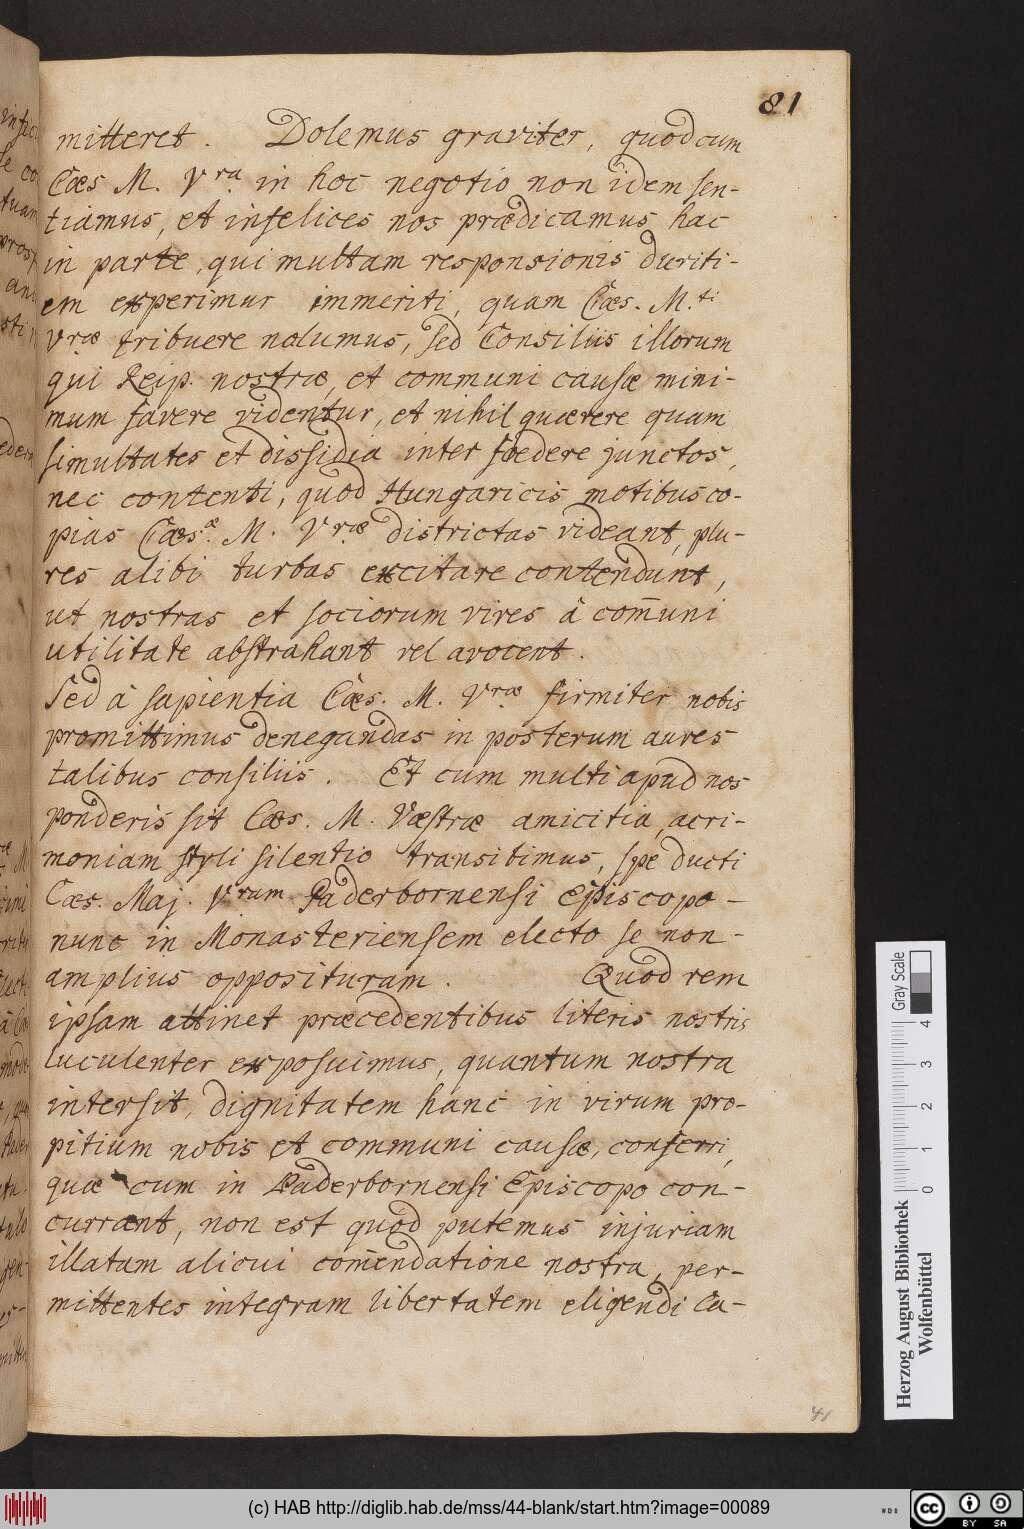 81
mitteret. Dolemus graviter, quod cum
Cæs M. Vra. in hoc negotio non idem sen-
tiamus, et infelices nos prædicamus hac
in parte, qui multam responsionis duriti-
em experimur immeriti, quam Cæs. M.ti
Vræ tribuere nolumus, sed Consiliis illorum
qui Reip. nostræ, et communi causæ mini-
mum favere videntur, et nihil quærere quam
simultates et dissidia inter fœdere junctos,
nec contenti, quod Hungaricis motibus co-
pias Cæs.æ M. Vræ districtas videant, plu-
res alibi turbas excitare contendunt,
ut nostras et sociorum vires à com̄uni
utilitate abstrahant vel avocent.
Sed à sapientia Cæs. M. Vræ firmiter nobis
promittimus denegandas in posterum aures
talibus consiliis. Et cum multi apud nos
ponderis sit Cæs. M. Væstræ amicitia, acri-
moniam styli silentio transibimus, spe ducti
Cæs. Maj. Vram Paderbornensi Episcopo-
nunc in Monasteriensem electo se non-
amplius opposituram. Quod rem
ipsam attinet præcedentibus literis nostris
luculenter exposuimus, quantum nostra
intersit, dignitatem hanc in virum pro-
pitium nobis et communi causæ, conferri,
quæ cum in Paderbornensi Episcopo con-
currant, non est quod putemus injuriam
illatam alicui com̄endatione nostra, per-
mittentes integram libertatem eligendi Ca-
41
Herzog August Bibliothek
Wolfenbüttel
0 1 2 3 4
Gray Scale
(c) HAB http://diglib.hab.de/mss/44-blank/start.htm?image=00089
WDB
CC BY SA